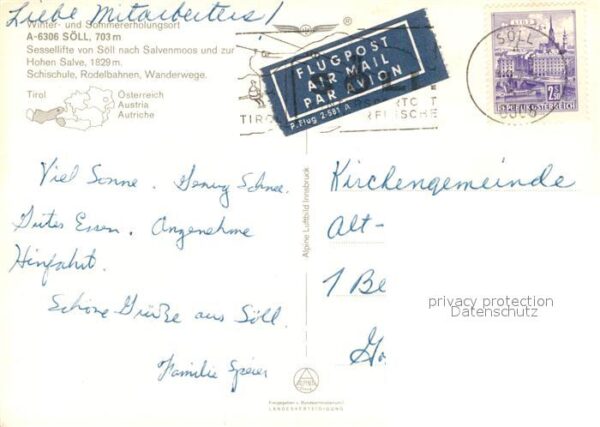 Liebe Mitarbeiter!
Winter- und Sommererholungsort
A-6306 SÖLL, 703 m
Sessellifte von Söll nach Salvenmoos und zur
Hohen Salve, 1829 m.
Schischule, Rodelbahnen, Wanderwege.
Tirol
Österreich
Austria
Autriche
®
FLUGPOST
AIR MAIL
PAR AVION
P. Flug 2-581 A
TIRO
SPORTORT
ERFRISCHE
LINZ
SÖLL
REPUBLIK ÖSTERREICH
2.50
Viel Sonne. Genug Schnee.
Gutes Essen. Angenehme
Hinfahrt.
Schöne Grüße aus Söll.
Familie Speier
Alpine Luftbild Innsbruck
Kirchengemeinde
Alt-
1 Be
privacy protection
Datenschutz
ALPINE
Freigegeben v. Bundesministerium f.
LANDESVERTEIDIGUNG